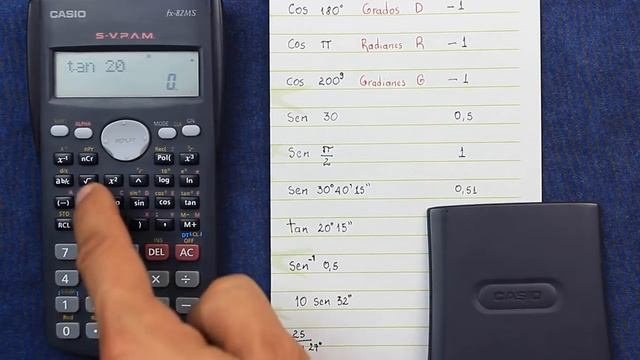 CASIO fx-82MS
S-V.P.A.M.
tan 20
0.
SHIFT ALPHA MODE CLR ON
REPLAY
x⁻¹ nCr Pol( x³
ab/c √ x² ^ log ln
(−) sin cos tan
RCL ) , M+
7 DEL AC
4 × ÷
1
0
Cos 180° Grados D −1
Cos π Radianes R −1
Cos 200ᵍ Gradianes G −1
Sen 30 0,5
Sen π/2 1
Sen 30°40'15" 0,51
tan 20°15"
Sen⁻¹ 0,5
10 Sen 32°
25
27°
CASIO